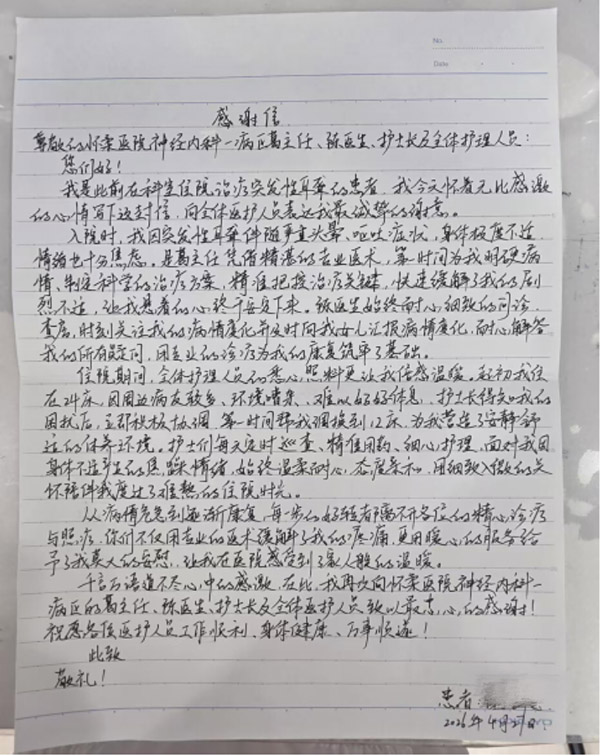 No.
Date
感谢信
尊敬的怀柔医院神经内科一病区葛主任、陈医生、护士长及全体护理人员：
您们好！
我是此前在科室住院治疗突发性耳聋的患者，我今天怀着无比感激
的心情写下这封信，向全体医护人员表达我最诚挚的谢意。
入院时，我因突发性耳聋伴随严重头晕、呕吐症状，身体极度不适
情绪也十分焦虑。是葛主任凭借精湛的专业医术，第一时间为我明确病
情、制定科学的治疗方案，精准把控治疗关键，快速缓解了我的剧
烈不适，让我悬着的心终于安定下来。陈医生始终耐心细致的问诊
查房，时刻关注我的病情变化并及时间我女儿汇报病情变化，耐心解答
我的所有疑问，用专业的诊疗为我的康复筑牢了基础。
住院期间，全体护理人员的悉心照料更让我倍感温暖。起初我住
在24床，因周边病友较多、环境嘈杂，难以好好休息，护士长得知我的
困扰后，立即积极协调，第一时间帮我调换到12床，为我营造了安静舒
适的休养环境。护士们每天定时巡查、精准用药、细心护理，面对我因
身体不适产生的焦躁情绪，始终温柔耐心，态度亲和，用细致入微的关
怀陪伴我度过了难熬的住院时光。
从病情危急到逐渐康复，每一步的好转都离不开各位的精心诊疗
与照护，你们不仅用专业的医术缓解了我的疼痛，更用暖心的服务给
予了我莫大的安慰，让我在医院感受到了家人般的温暖。
千言万语道不尽心中的感激，在此，我再次向怀柔医院神经内科一
病区的葛主任、陈医生、护士长及全体医护人员致以最衷心的感谢！
祝愿各位医护人员工作顺利、身体健康、万事顺遂！
此致
敬礼！
患者
2026年4月27日.